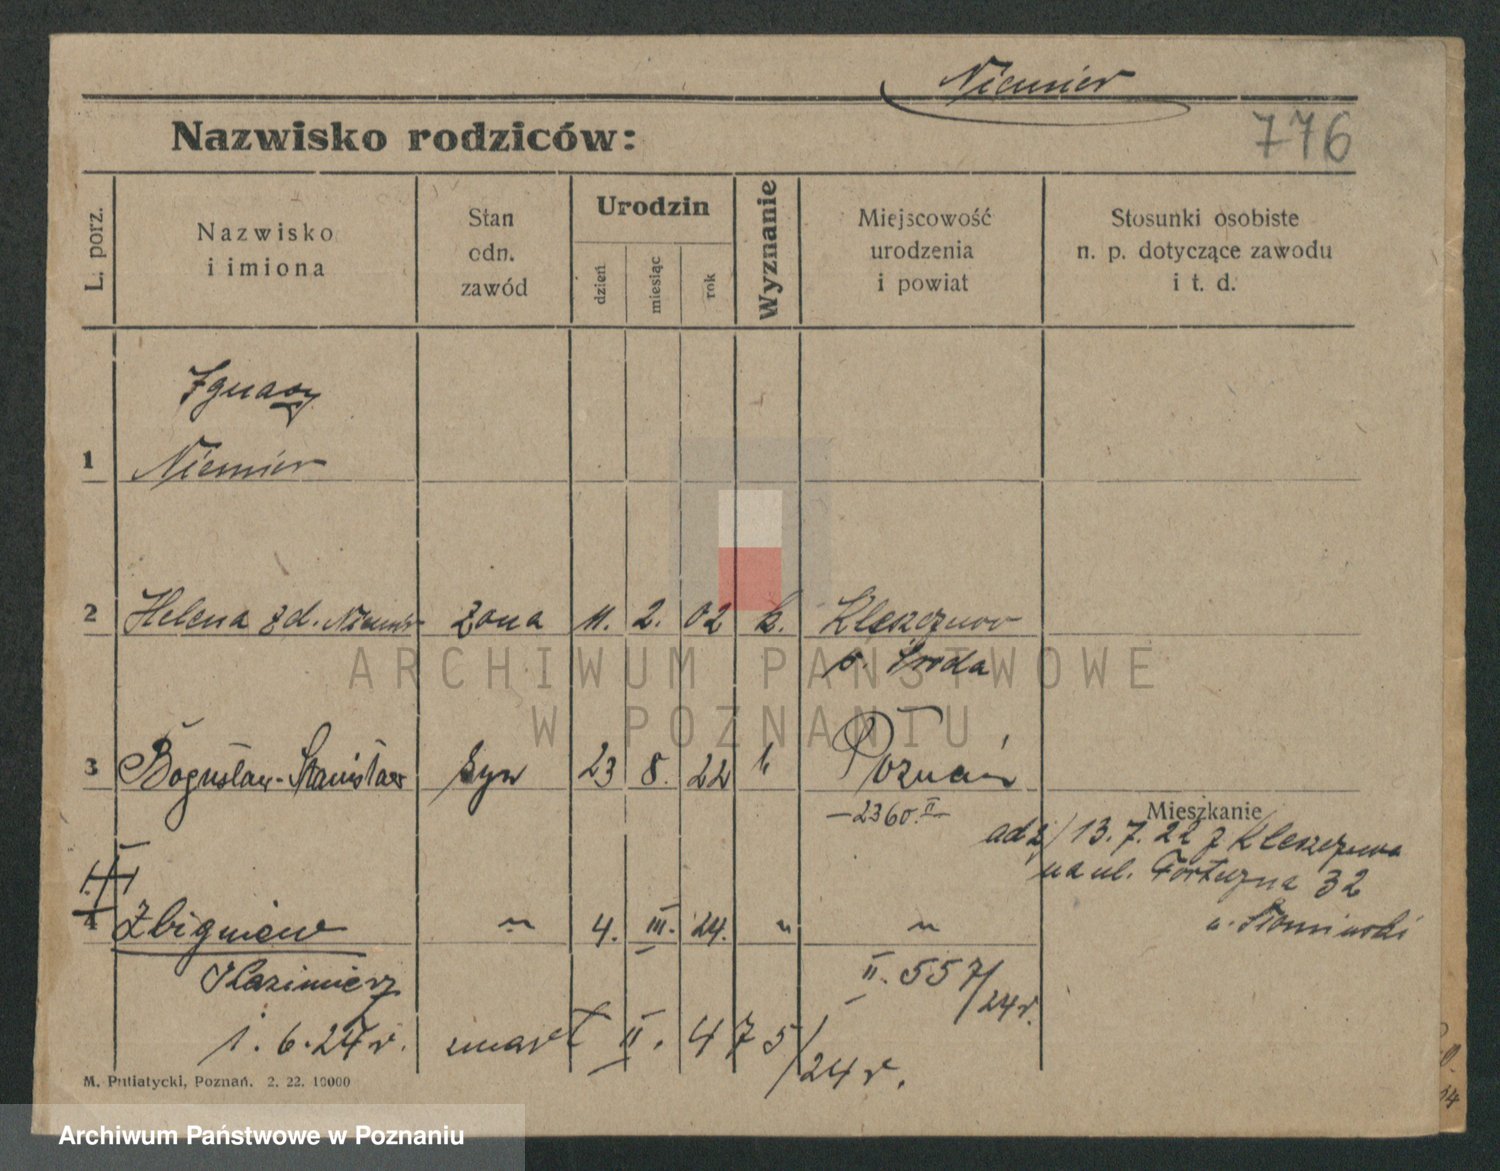 Niemier
Nazwisko rodziców:
776
L. porz.
Nazwisko
i imiona
Stan
odn.
zawód
Urodzin
dzień
miesiąc
rok
Wyznanie
Miejscowość
urodzenia
i powiat
Stosunki osobiste
n. p. dotyczące zawodu
i t. d.
Ignacy
1 Niemier
2 Helena zd. Niemier żona 11. 2. 02 k. Kleszczewo
p. Środa
3 Bogusław-Stanisław syn 23 8. 22 k Poznań
—2360.II—
Mieszkanie
adż/ 13. 7. 22 z Kleszczewa
na ul. Fortuzna 32
u. Słomiński
4 Zbigniew " 4. III. 24. " "
Kazimierz II. 557/24r.
1. 6. 24 r. zmarł II. 475/24 r.
M. Putiatycki, Poznań. 2. 22. 10000
ARCHIWUM PAŃSTWOWE
W POZNANIU
Archiwum Państwowe w Poznaniu